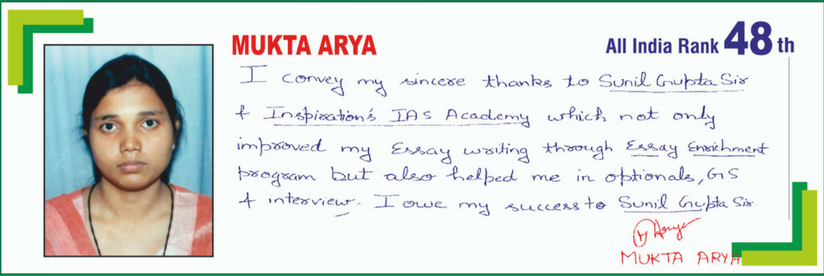 MUKTA ARYA
All India Rank 48th
I convey my sincere thanks to Sunil Gupta Sir
& Inspiration's IAS Academy which not only
improved my Essay writing through Essay Enrichment
program but also helped me in optionals, GS
& interview. I owe my success to Sunil Gupta Sir
Arya
MUKTA ARYA